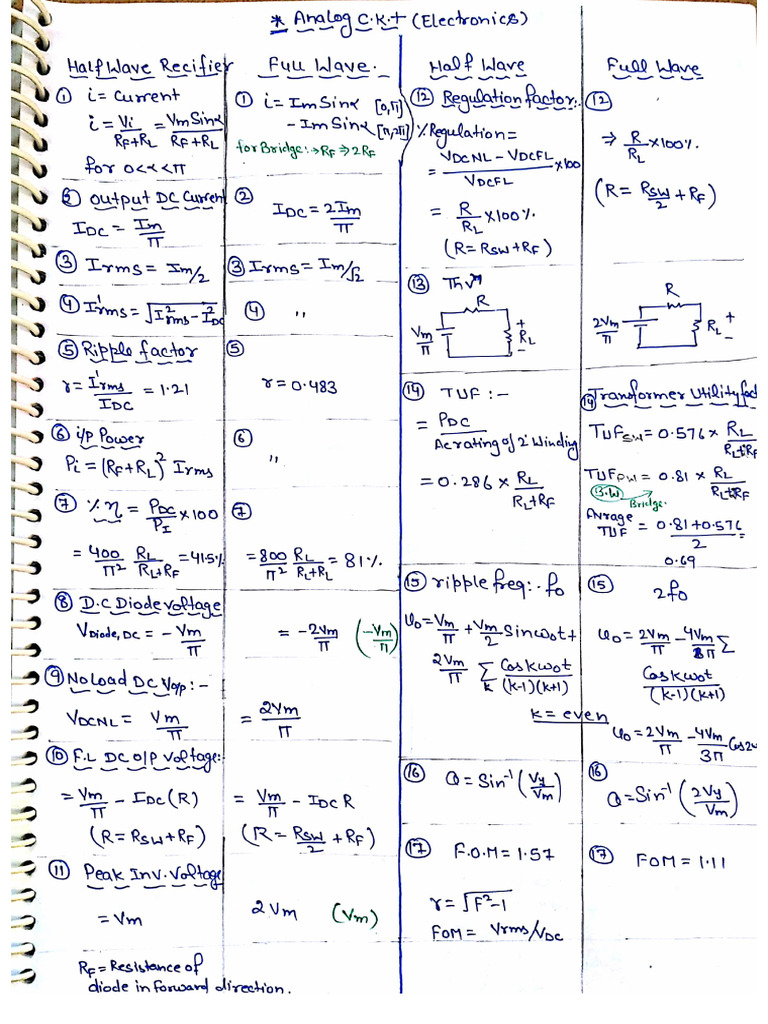 * Analog C.K.T (Electronics)
Half Wave Recifier
① i = Current
i = Vi/(RF+RL) = VmSinα/(RF+RL)
for 0<α<π
② Output DC Current
IDC = Im/π
③ Irms = Im/2
④ I'rms = √(I²rms - I²DC)
⑤ Ripple factor
r = I'rms/IDC = 1.21
⑥ i/p Power
Pi = (RF+RL)² Irms
⑦ % η = PDC/PI × 100
= 400/π² RL/(RL+RF) = 41.5%
⑧ D.C Diode Voltage
VDiode,DC = -Vm/π
⑨ No Load DC Vo/p :-
VDCNL = Vm/π
⑩ F.L DC O/P Voltage:-
= Vm/π - IDC(R)
(R = RSW + RF)
⑪ Peak Inv. Voltage
= Vm
RF = Resistance of
diode in forward direction.
Full Wave.
① i = Im Sinα [0,π]
- Im Sinα [π,2π]
for Bridge :→ RF ⇒ 2RF
② IDC = 2Im/π
③ Irms = Im/√2
④ ,,
⑤ r = 0.483
⑥ ,,
⑦
= 800/π² RL/(RL+RL) = 81%
= -2Vm/π (-Vm/π)
= 2Vm/π
= Vm/π - IDC R
(R = RSW/2 + RF)
2Vm (Vm)
Half Wave
⑫ Regulation factor:-
% Regulation =
= (VDCNL - VDCFL)/VDCFL × 100
= R/RL × 100%
(R = RSW + RF)
⑬ Thvⁿ
R
Vm/π
+ RL -
⑭ TUF :-
= PDC/Ac rating of 2° Winding
= 0.286 × RL/(RL+RF)
⑮ ripple freq:- fo
υo = Vm/π + Vm/2 Sinωot +
2Vm/π Σk Coskωot/(k-1)(k+1)
k = even
⑯ Q = Sin⁻¹(Vy/Vm)
⑰ F.O.M = 1.57
r = √(F²-1)
FOM = Vrms/VDC
Full Wave
⑫
⇒ R/RL × 100%
(R = RSW/2 + RF)
R
2Vm/π
RL + -
⑭ Transformer Utility fact
TUFSW = 0.576 × RL/(RL+RF)
TUFPW = 0.81 × RL/(RL+RF)
B.W Bridge.
Avrage
TUF = (0.81+0.576)/2 =
0.69
⑮ 2fo
υo = 2Vm/π - 4Vm/π Σ
Coskωot/(k-1)(k+1)
υo = 2Vm/π - 4Vm/3π Cos2ω
⑯
Q = Sin⁻¹(2Vy/Vm)
⑰ FOM = 1.11